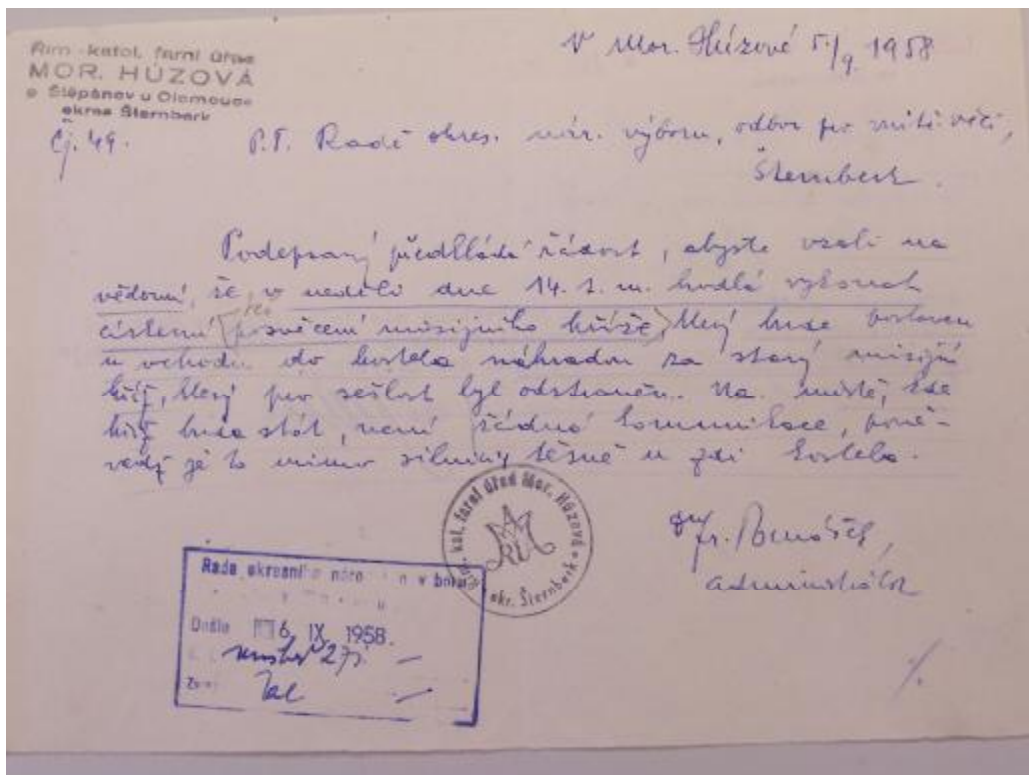 Řím.-katol. farní úřad
MOR. HÚZOVÁ
p. Štěpánov u Olomouce
okres Šternberk
V Mor. Húzové 5/9. 1958
Čj. 49.
P.T. Radě okres. nár. výboru, odbor pro vnitř. věci,
Šternberk.
Podepsaný předkládá žádost, abyste vzali na
vědomí, že v neděli dne 14. t. m. hodlá vykonati
posvěcení misijního kříže, který bude postaven
u vchodu do kostela náhradou za starý misijní
kříž, který pro sešlost byl odstraněn. Na místě, kde
kříž bude stát, není žádná kommunikace, poně-
vadž je to mimo silnici těsně u zdi kostela.
kat. farní úřad Mor. Húzová
okr. Šternberk
Fr. Tomášek,
administrátor
Rada okresního
Došlo 6. IX. 1958.